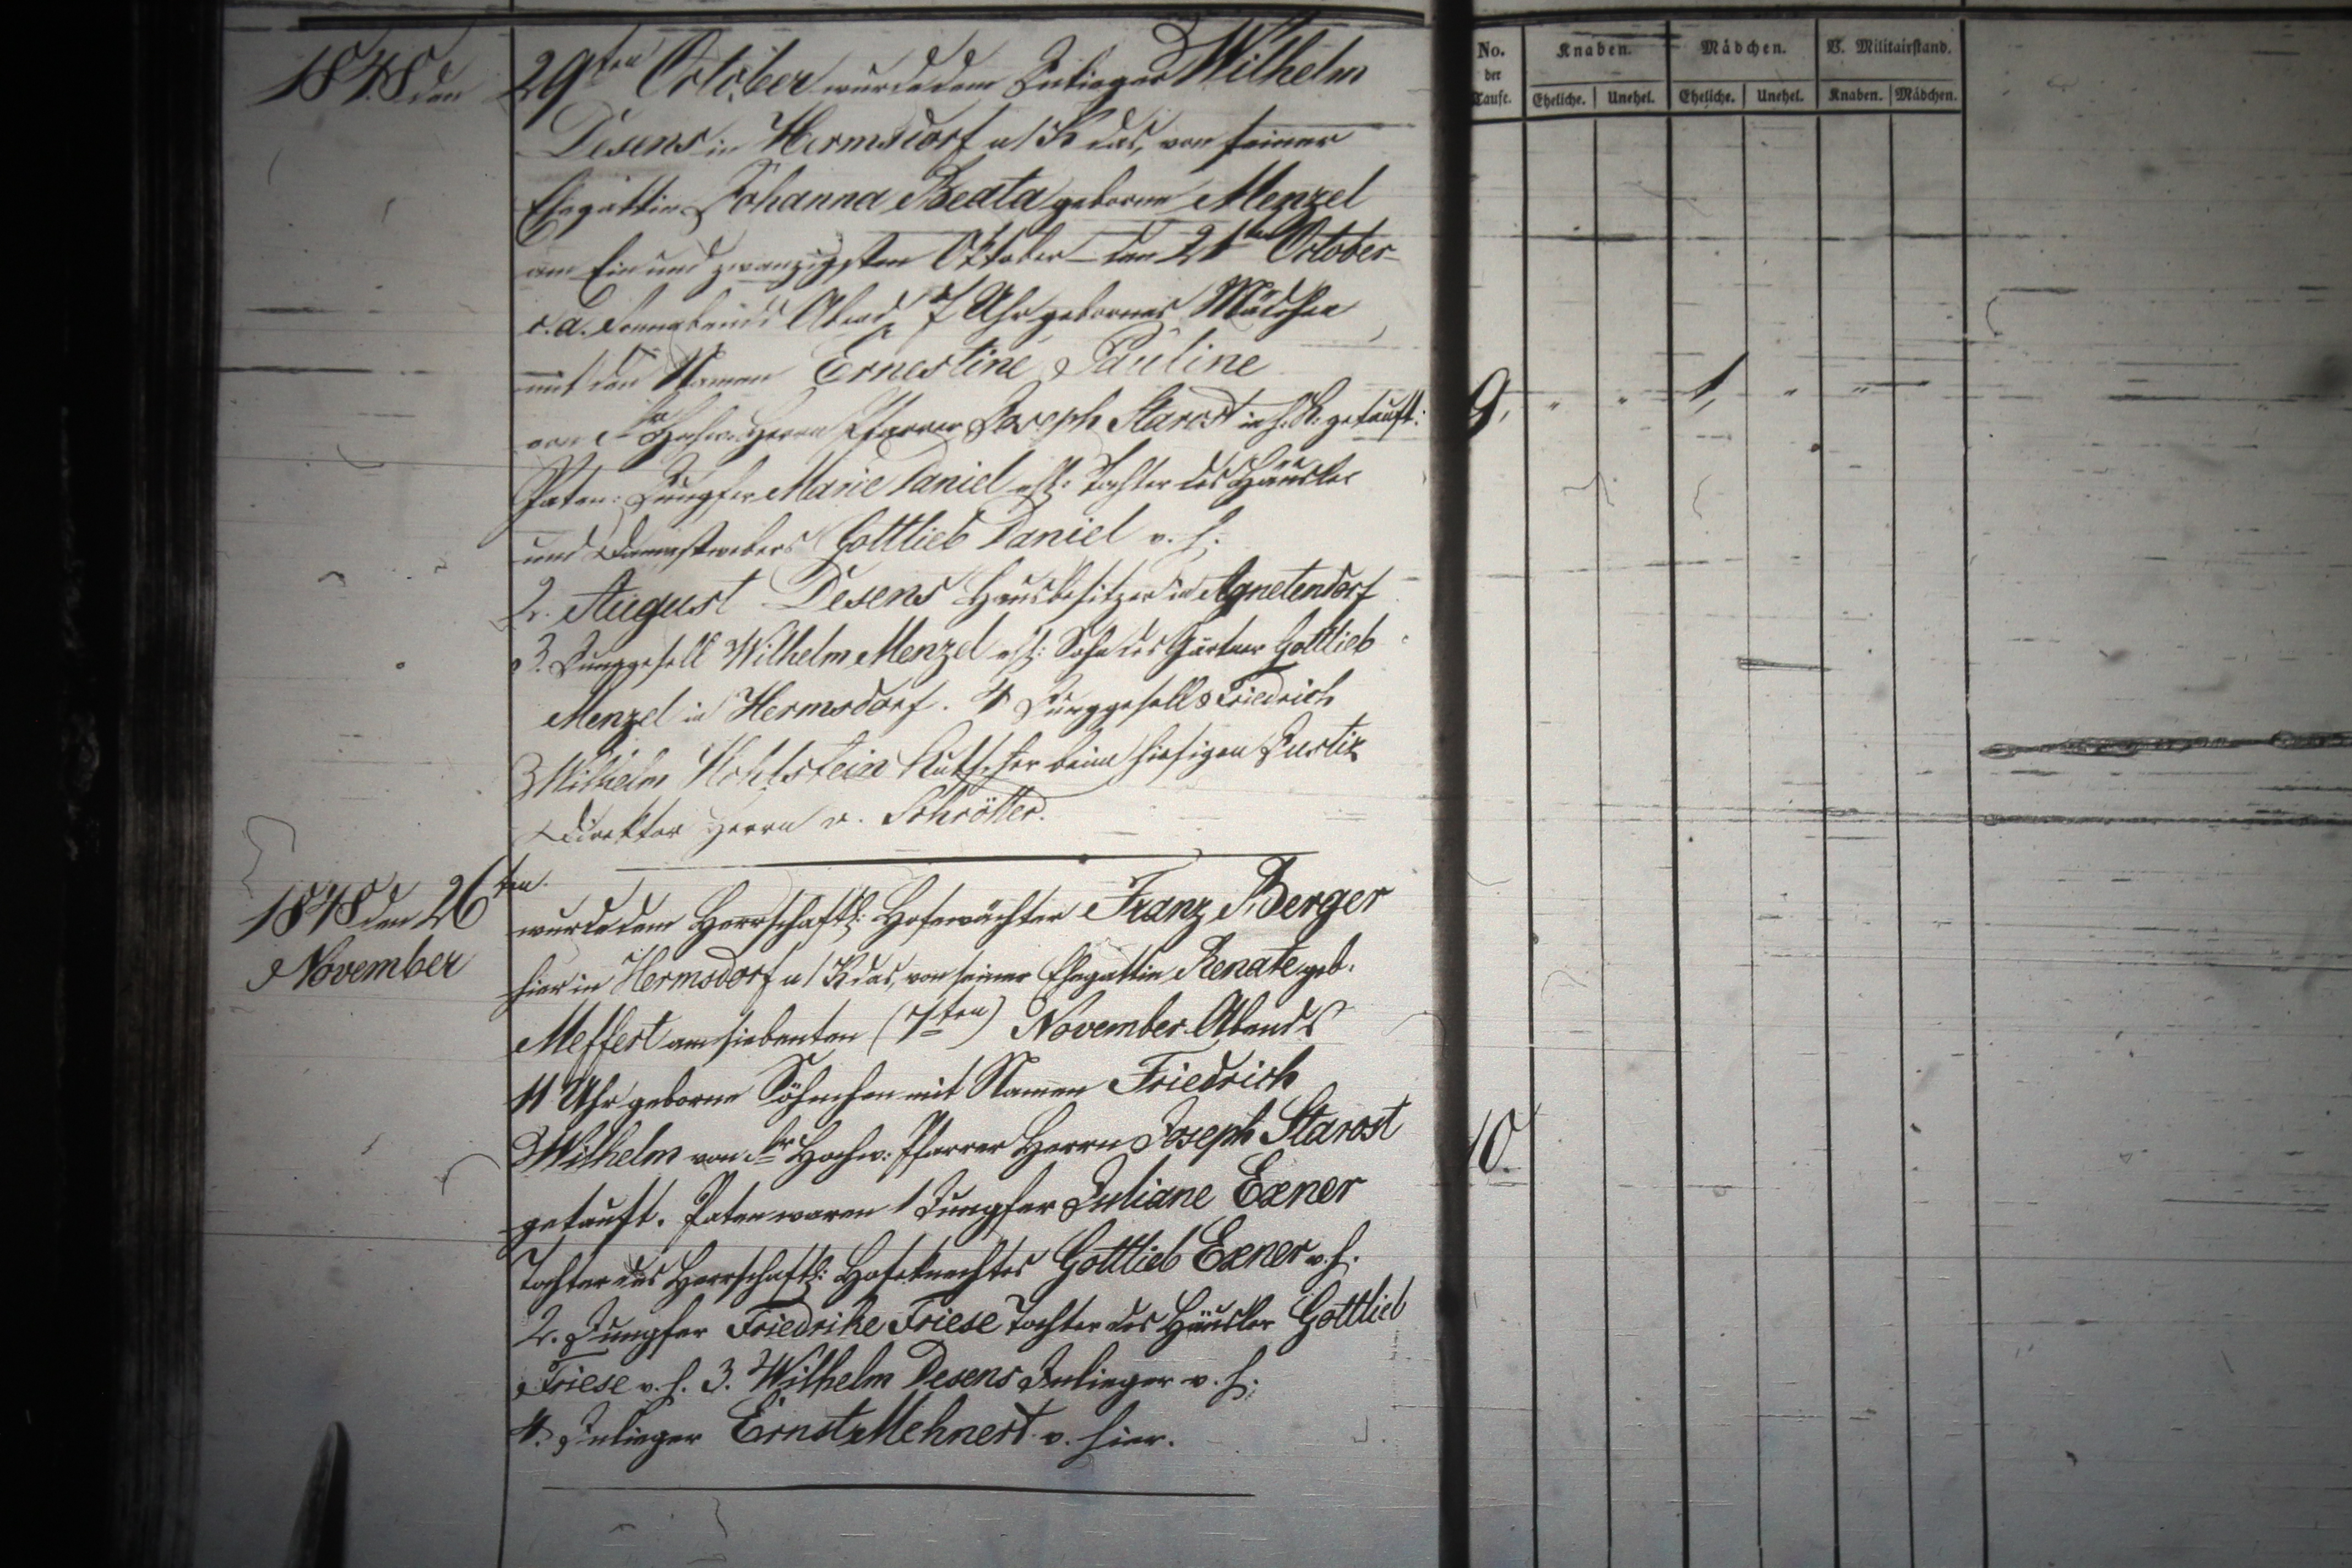 1848 den 29ten October wurde dem Inlieger Wilhelm
Desens in Hermsdorf u/K das, von seiner
Ehegattin Johanna Beata geborne Menzel
am Ein und zwanzigsten Oktober den 21ten October
c. a. Sonnabends Abend 7 Uhr gebornes Mädchen
mit den Namen Ernestine Pauline
von Sr Hochw. Herrn Pfarrer Joseph Starost in h. K. getauft:
Paten: Jungfer Marie Daniel ehl: Tochter des Häusler
und Damastwebers Gottlieb Daniel v. h.
2. August Desens Hausbesitzer in Agnetendorf
3. Junggesell Wilhelm Menzel ehl: Sohn des Gärtner Gottlieb
Menzel in Hermsdorf. 4 Junggesell Friedrich
Wilhelm Hohlstein Kutscher beim hiesigen Justiz
Direktor Herrn v. Schrötter.
1848 den 26ten
November
wurde dem Herrschaftl: Hofewächter Franz Berger
hier in Hermsdorf u/K das, von seiner Ehegattin Renate geb.
Meffert am siebenten (7ten) November Abends
11 Uhr geborne Söhnchen mit Namen Friedrich
Wilhelm von Sr Hochw: Pfarrer Herrn Joseph Starost
getauft. Paten waren 1 Jungfer Juliane Exner
Tochter des Herrschaftl: Hofeknechtes Gottlieb Exner v. h.
2. Jungfer Friedrike Friese Tochter des Häusler Gottlieb
Friese v. h. 3. Wilhelm Desens Inlieger v. h.
4. Inlieger Ernst Mehnert v. hier.
No. der Taufe.
Knaben. Mädchen. V. Militairstand.
Eheliche. Unehel. Eheliche. Unehel. Knaben. Mädchen.
9. " " 1, " "
10.